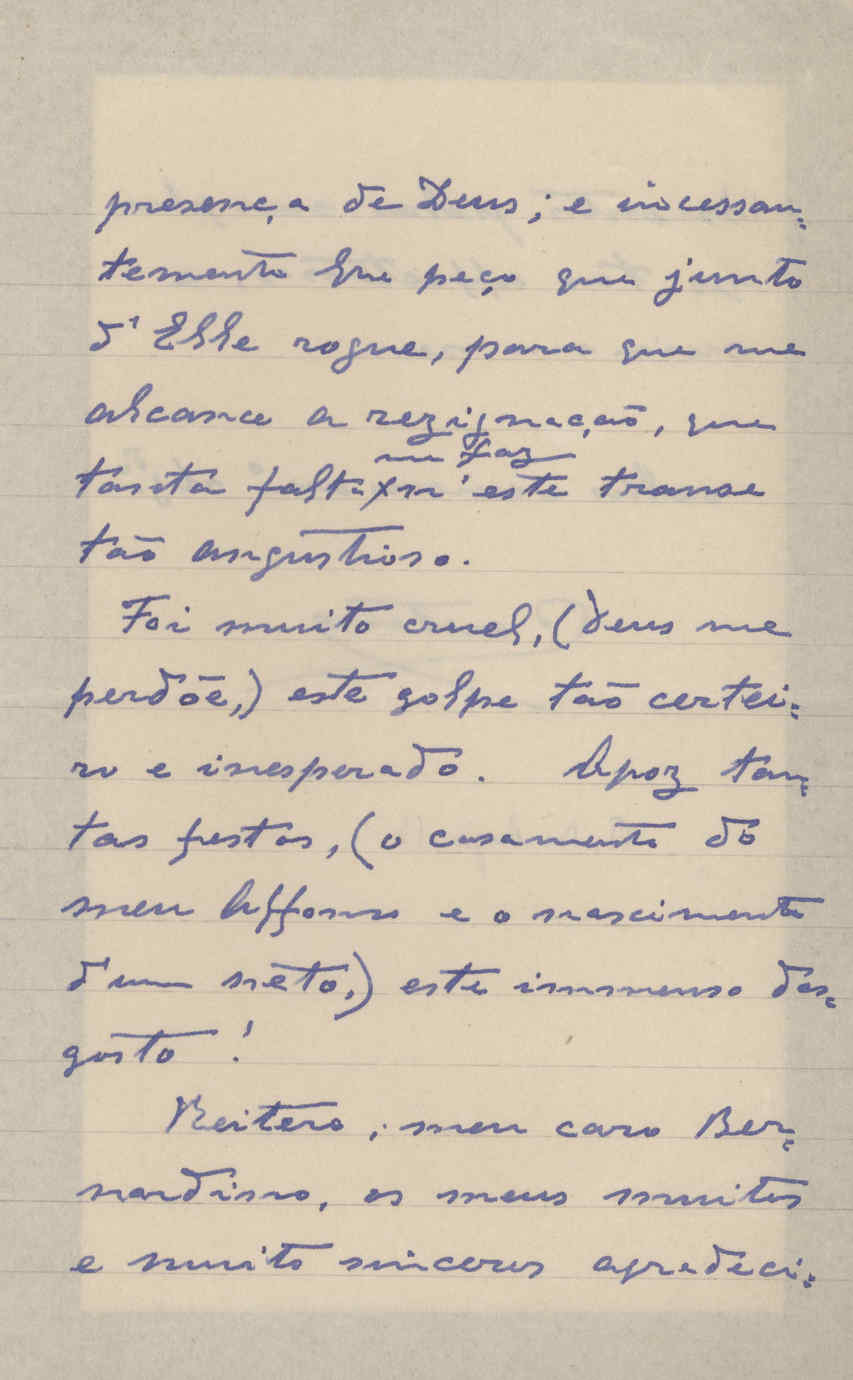 presença de Deus; e incessan=
temente lhe peço que junto
d'Elle rogue, para que me
alcance a rezignação, que
me faz
tanta falta x n'este transe
tão angustioso.
Foi muito cruel, (Deus me
perdõe,) este golpe tão certei=
ro e inesperado. Apoz tan=
tas festas, (o casamento do
meu Affonso e o nascimento
d'um néto,) este immenso des=
gosto!
Reitero, meu caro Ber=
nardino, os meus muitos
e muito sinceros agradeci=